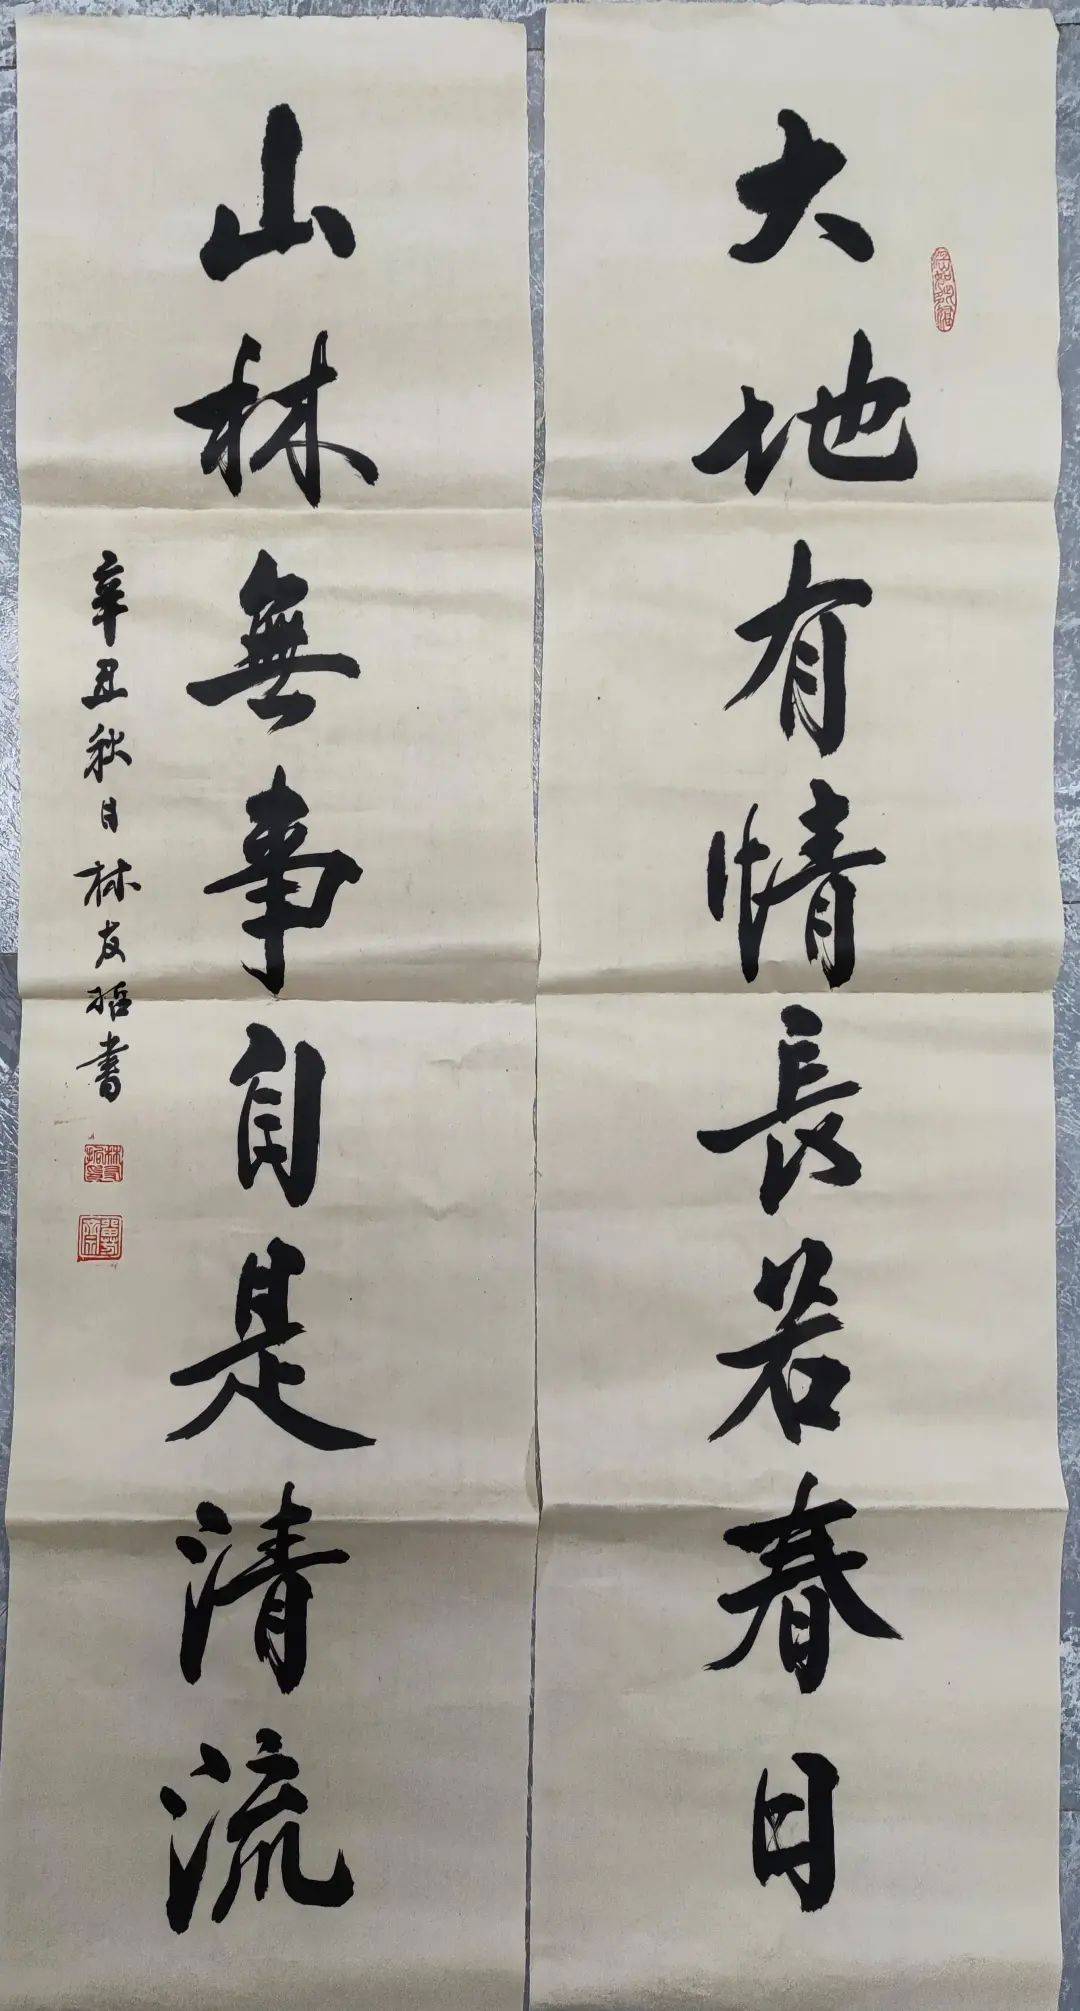 大地有情長若春日
山林無事自是清流
辛丑秋日林友哲書